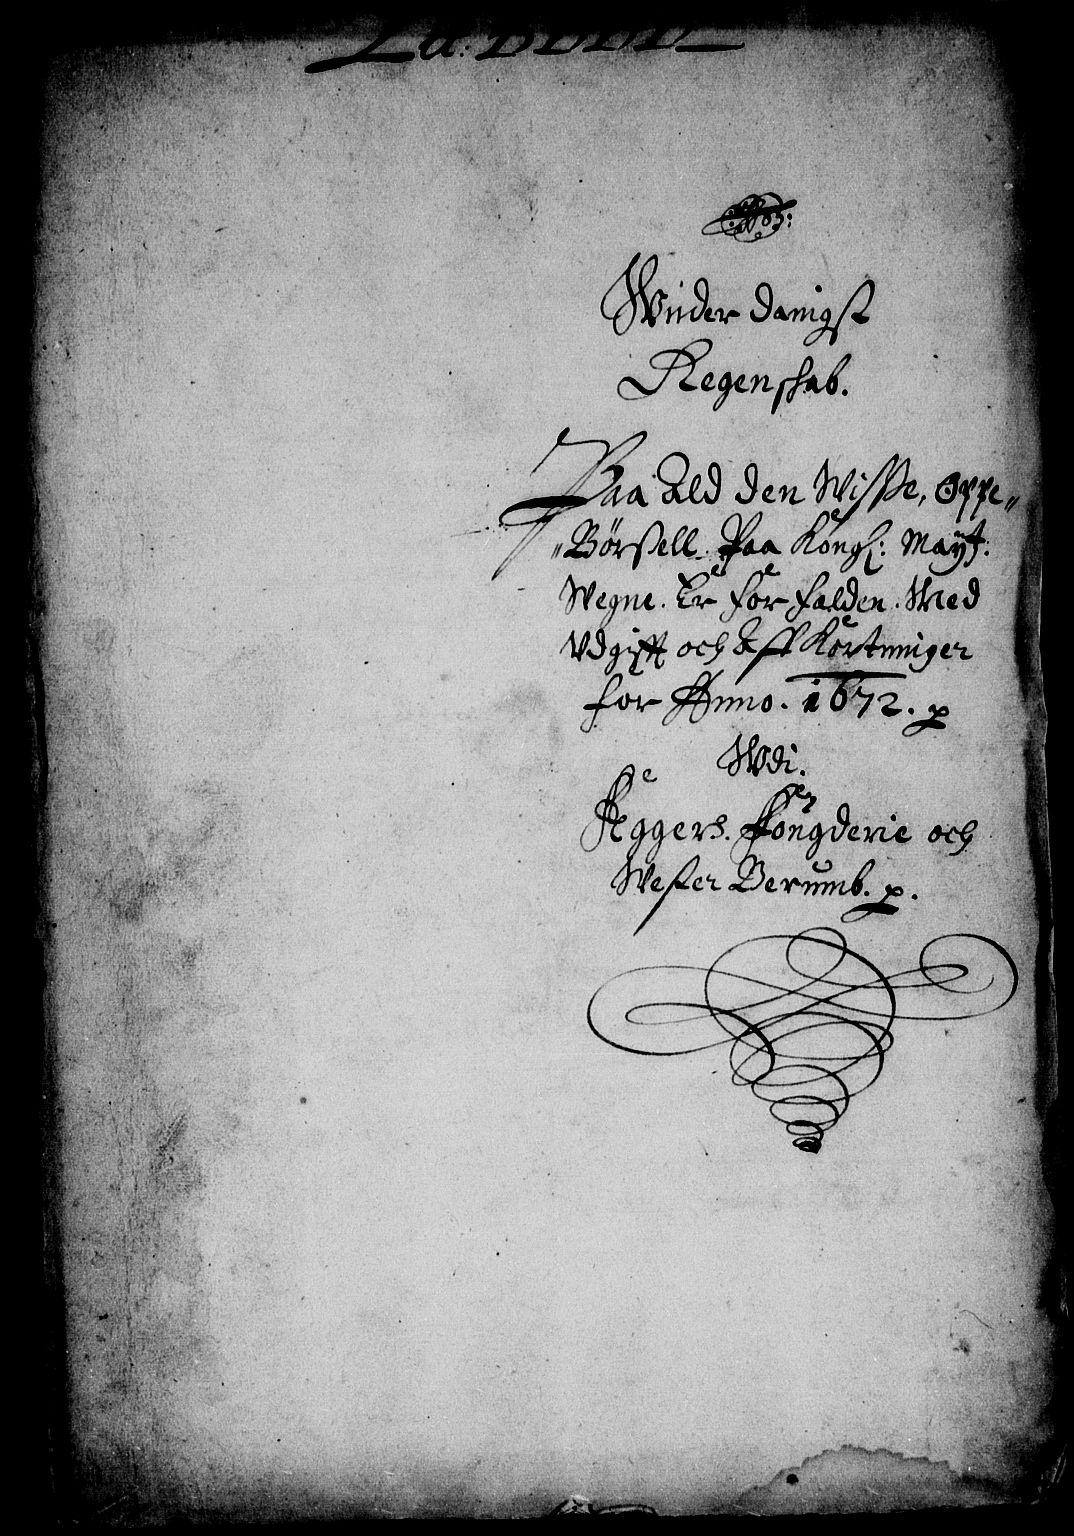 La: BBBB
Wnderdanigst
Regenskab.
Paa Ald den Wisse, Oppe„
„Börsell. Paa Kongl: Mayt:
Wegne. Er for falden. Med
Vdgifft och Aff Kortninger
for Anno. 1672. p
Wdi.
Aggers. Fougderie och
Wester Berumb. p.